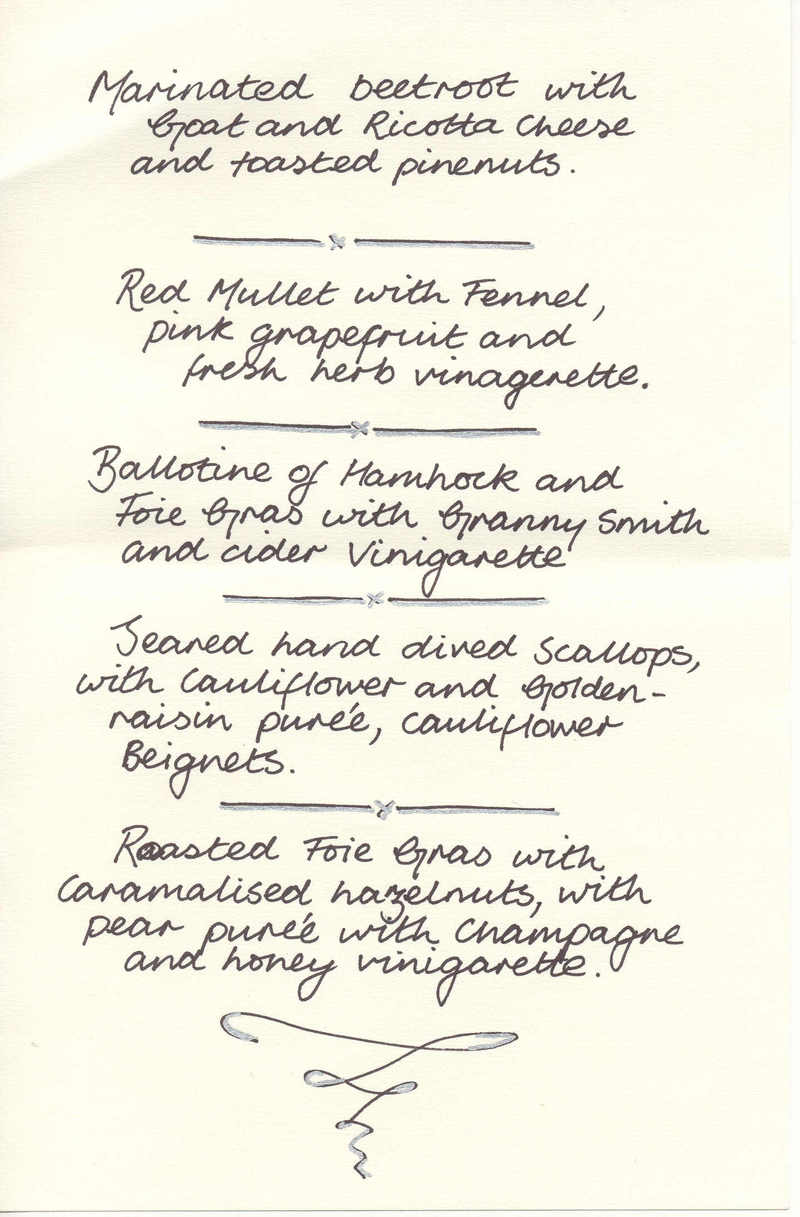 Marinated beetroot with
Goat and Ricotta Cheese
and toasted pinenuts.
Red Mullet with Fennel,
pink grapefruit and
fresh herb vinagerette.
Ballotine of Hamhock and
Foie Gras with Granny Smith
and cider Vinigarette
Seared hand dived Scallops,
with Cauliflower and Golden-
raisin purée, Cauliflower
Beignets.
Roasted Foie Gras with
Caramalised hazelnuts, with
pear purée with Champagne
and honey vinigarette.